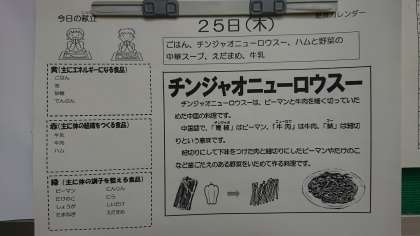 今日の献立
カレンダー
25日(木)
ごはん、チンジャオニューロウスー、ハムと野菜の
中華スープ、えだまめ、牛乳
黄(主にエネルギーになる食品)
ごはん
油
砂糖
でんぷん
赤(主に体の組織をつくる食品)
牛乳
牛肉
ハム
緑(主に体の調子を整える食品)
ピーマン にんじん
たけのこ にら
しょうが しいたけ
たまねぎ えだまめ
チンジャオニューロウスー
チンジャオニューロウスーは、ピーマンと牛肉を細く切っていた
めた中国の料理です。
中国語で、「青椒」はピーマン、「牛肉」は牛肉、「絲」は細切
りという意味です。
細切りして下味をつけた肉と細切りにしたピーマンやたけのこ
など歯ごたえのある野菜をいためて作る料理です。